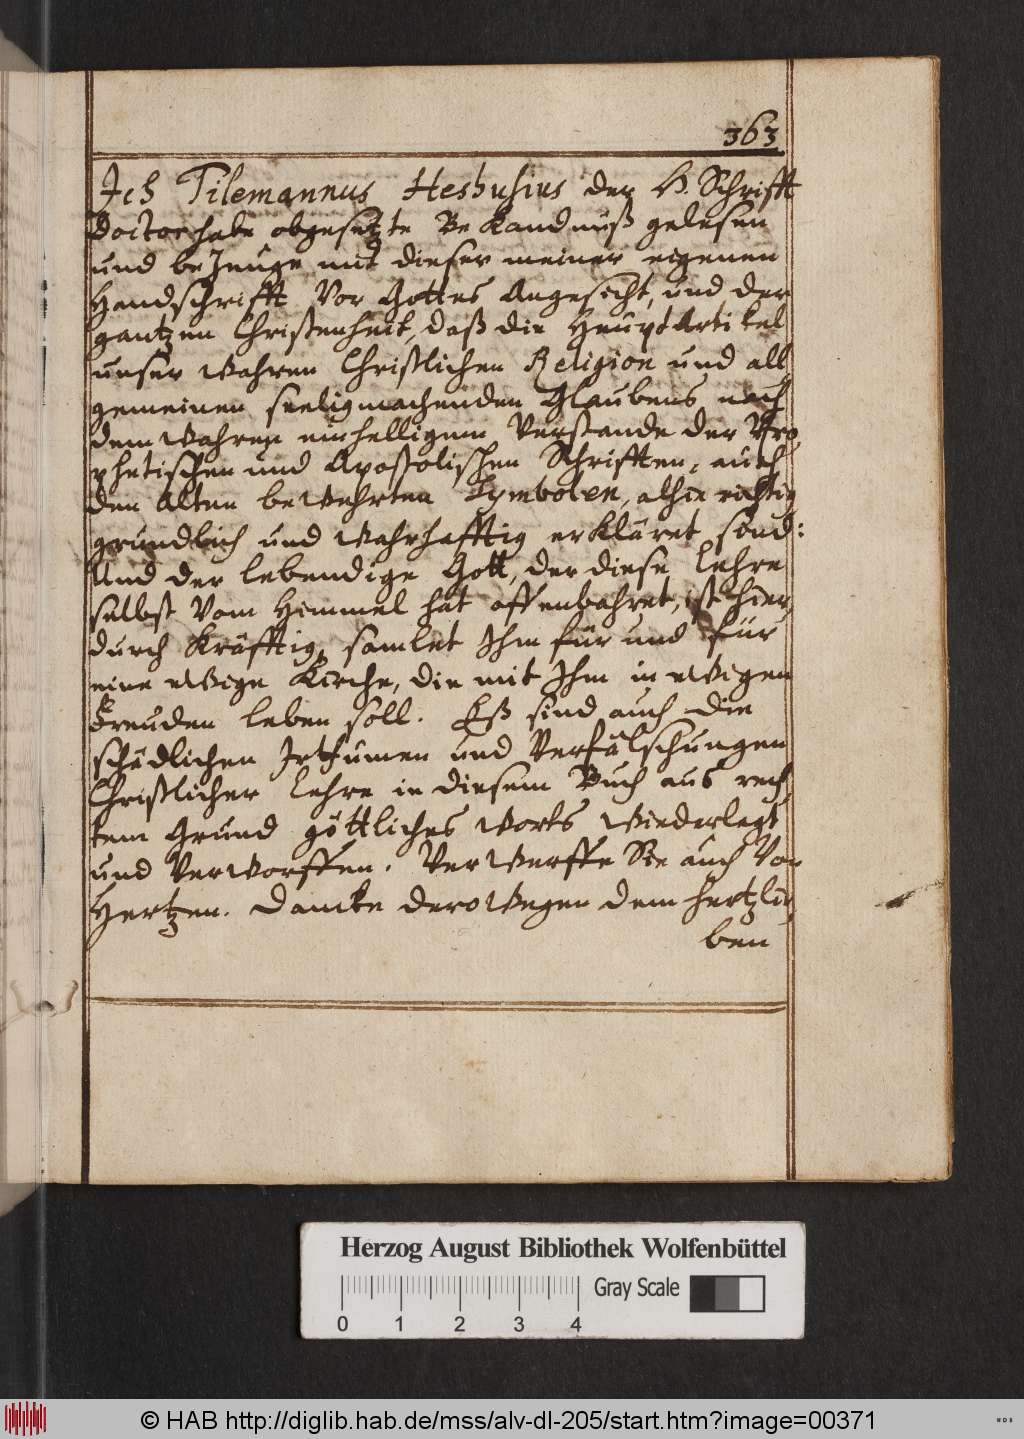 363
Ich Tilemannus Heshusius der H. Schrifft
Doctor habe obgesetzte Bekandnuß gelesen
und bezeuge mit dieser meiner eigenen
Handschrifft Vor Gottes Angesicht, und der
gantzen Christenheit, daß die HauptArtikel
unser wahren Christlichen Religion und all
gemeinen seeligmachenden Glaubens nach
dem wahren einhelligem Verstande der Pro
phetischen und Apostolischen Schrifften, auch
den Alten bewehrten Symbolen, alhie richtig
grundlich und wahrhafftig erkläret sind:
Und der lebendige Gott, der diese Lehre
selbst Vom Himmel hat offenbahret, ist hier
durch kräfftig, samlet Ihm für und für
eine ewige Kirche, die mit Ihm in ewigen
Freuden leben soll. Eß sind auch die
schädlichen Irthumen und Verfälschungen
Christlicher Lehre in diesem Buch aus rech
tem Grund göttliches Worts Wiederlegt
und Verworffen. Verwerffe Sie auch Von
Hertzen. Dancke derowegen dem hertzlie
ben
Herzog August Bibliothek Wolfenbüttel
Gray Scale
0 1 2 3 4
© HAB http://diglib.hab.de/mss/alv-dl-205/start.htm?image=00371